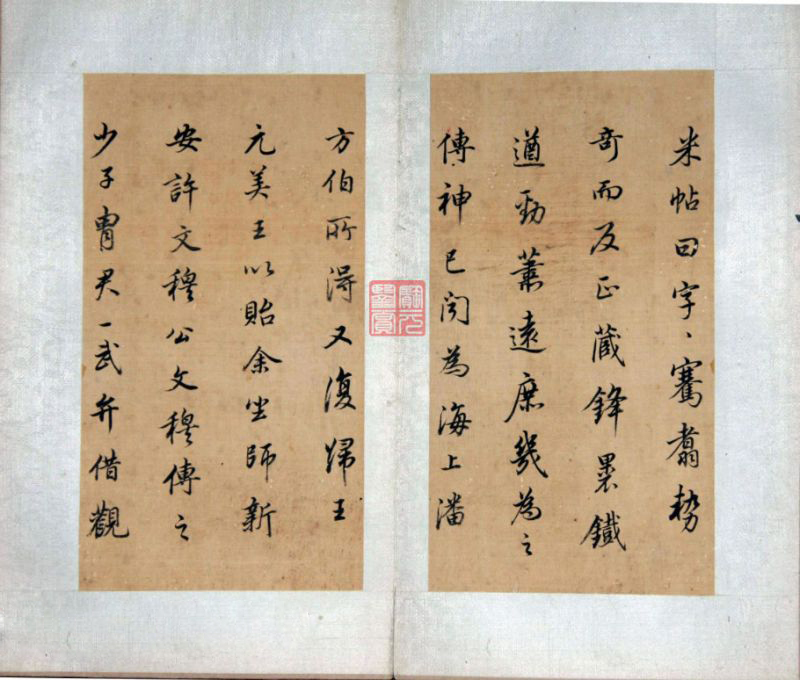 米帖曰字〻騫翥勢
奇而反正藏鋒裹鐵
遒勁蕭遠庶幾為之
傳神已聞為海上潘
方伯所得又復歸王
元美王以貽余坐師新
安許文穆公文穆傳之
少子胄君一武弁借觀